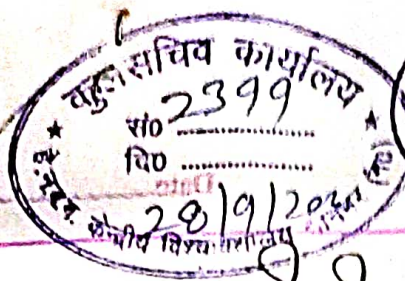 कुलसचिव कार्यालय
सं0 2399
दि0
28/9/20
केन्द्रीय विश्वविद्यालय